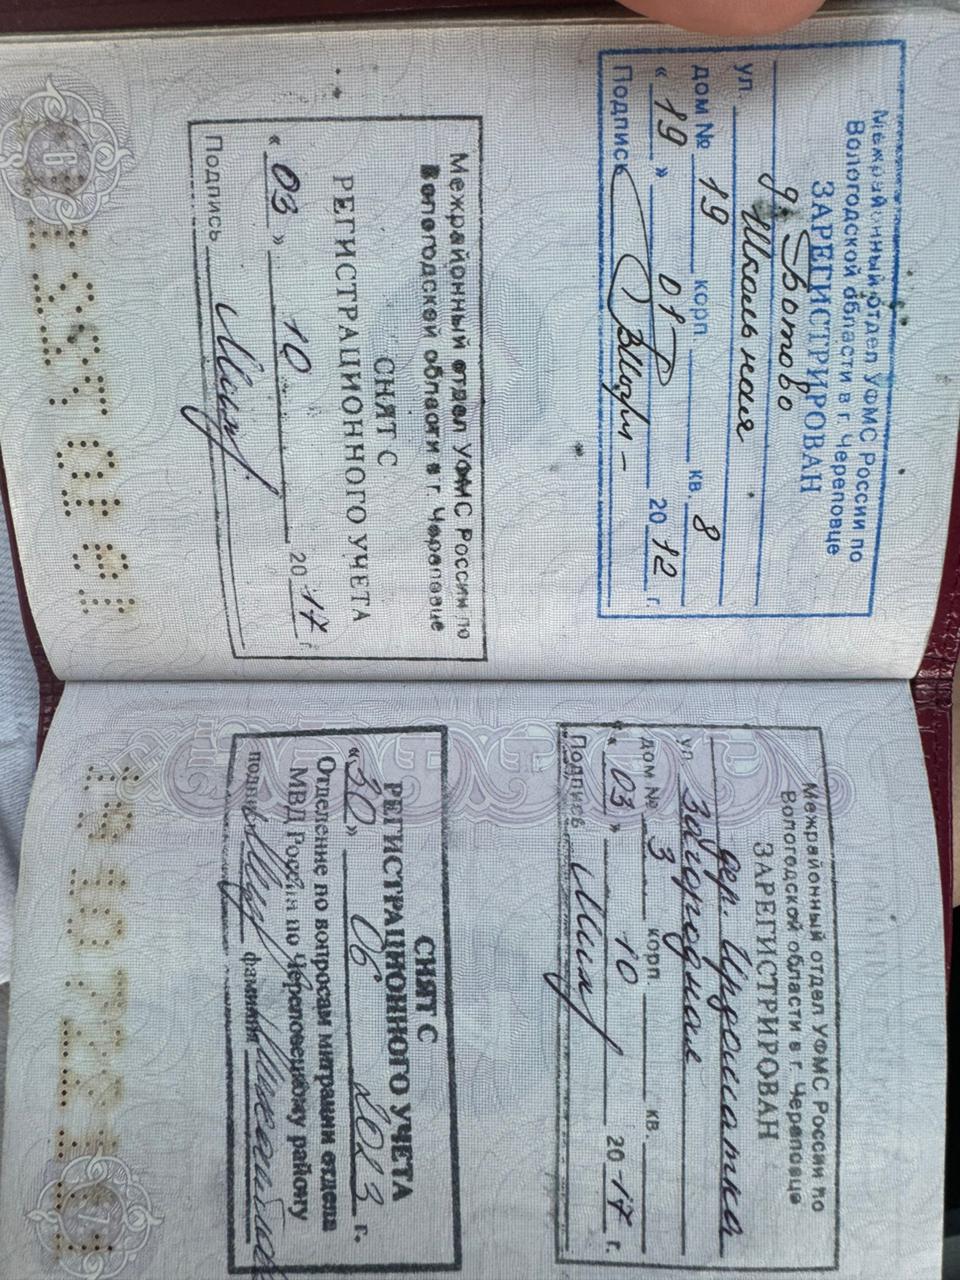 Межрайонный отдел УФМС России по
Вологодской области в г. Череповце
ЗАРЕГИСТРИРОВАН
д. Ботово
ул. Школьная
дом № 19 корп. кв. 8
« 19 » 01 20 12 г.
Подпись
Межрайонный отдел УФМС России по
Вологодской области в г. Череповце
СНЯТ С
РЕГИСТРАЦИОННОГО УЧЕТА
« 03 » 10 20 17 г.
Подпись
6
Межрайонный отдел УФМС России по
Вологодской области в г. Череповце
ЗАРЕГИСТРИРОВАН
дер. Ирдоматка
ул. Загородная
дом № 3 корп. кв.
« 03 » 10 20 17 г.
Подпись
СНЯТ С
РЕГИСТРАЦИОННОГО УЧЕТА
«30» 06 2023 г.
Отделение по вопросам миграции отдела
МВД России по Череповецкому району
подпись фамилия
7